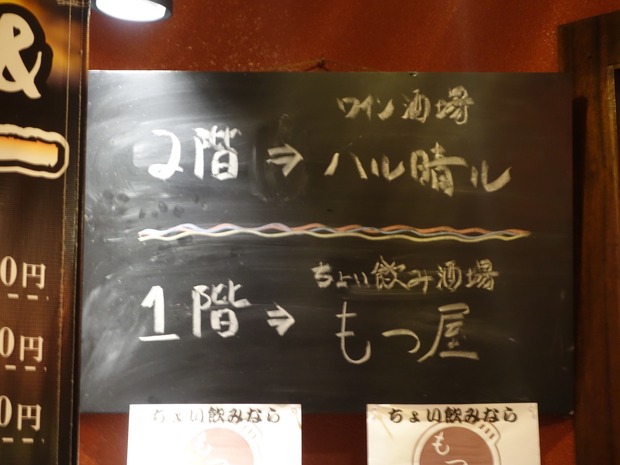 &
0円
0円
0円
ワイン酒場
2階⇒ハル晴ル
ちょい飲み酒場
1階⇒もつ屋
ちょい飲みなら
もつ
ちょい飲みなら
もつ